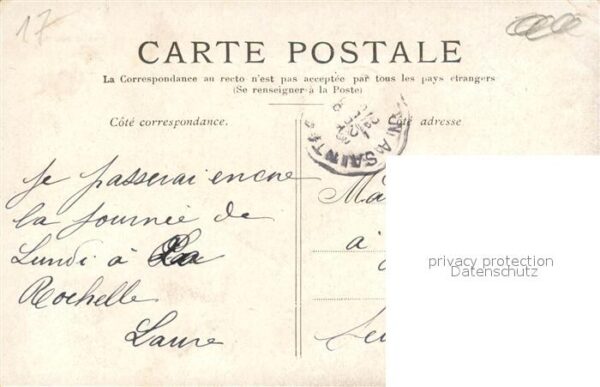 17
CARTE POSTALE
La Correspondance au recto n'est pas acceptée par tous les pays étrangers
(Se renseigner à la Poste)
Côté correspondance.
Côté adresse
SAINTES
Je passerai encore
la journée de
Lundi à La
Rochelle
Laure
à
privacy protection
Datenschutz